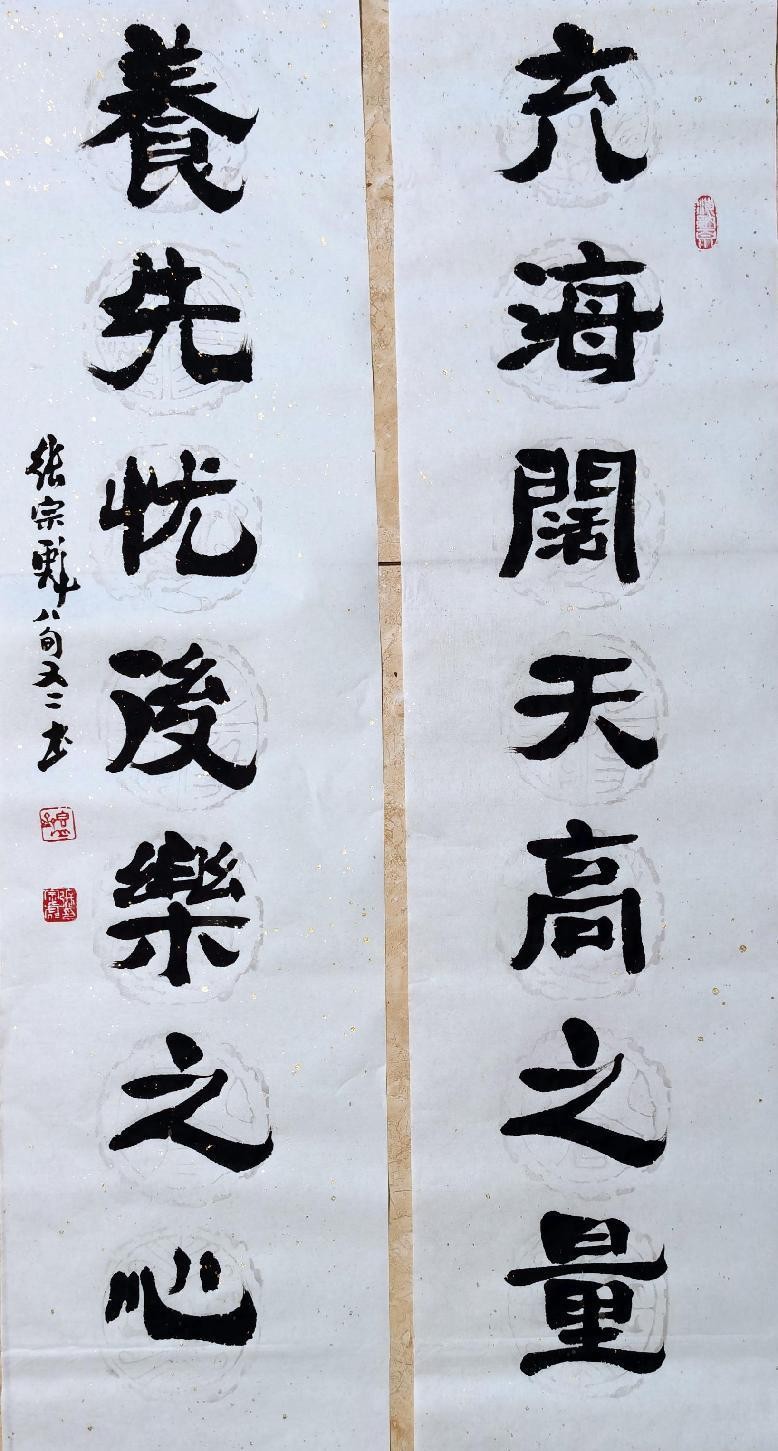 充海闊天高之量
養先忧後樂之心
張宗彪八旬又二书